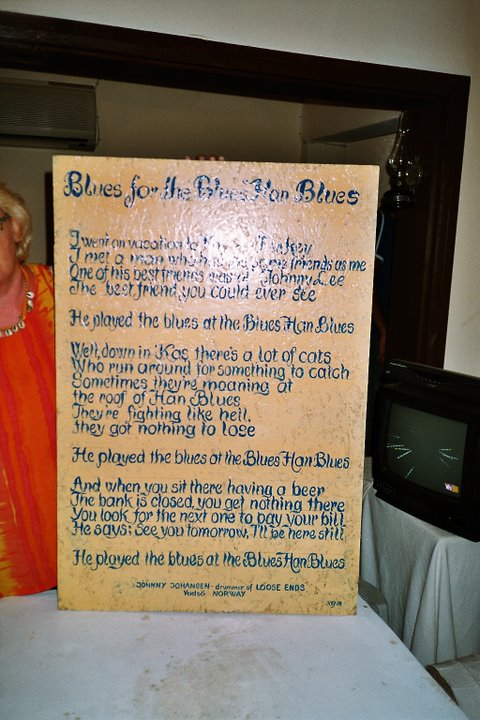 Blues for the Blues Han Blues
I went on vacation to Turkey
I met a man who same friends as me
One of his best friends was Johnny Lee
The best friend you could ever see
He played the blues at the Blues Han Blues
Well, down in Kaş there's a lot of cats
Who run around for something to catch
Sometimes they're moaning at
the roof of Han Blues
They're fighting like hell,
they got nothing to lose
He played the blues at the Blues Han Blues
And when you sit there having a beer
The bank is closed, you get nothing there
You look for the next one to pay your bill
He says: See you tomorrow, I'll be here still
He played the blues at the Blues Han Blues
JOHNNY JOHANSEN - drummer of LOOSE ENDS
Vadsö, NORWAY